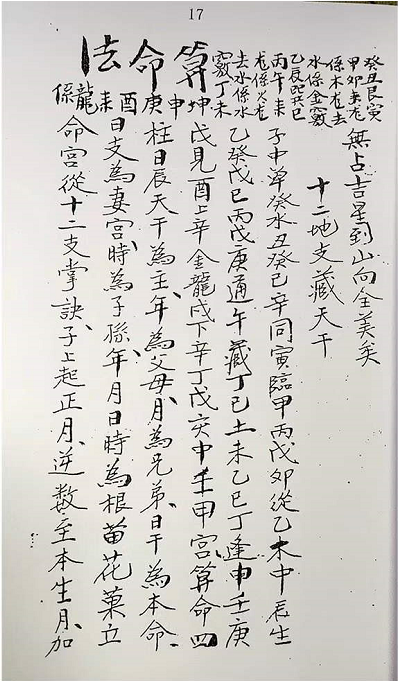 17
癸丑艮寅
甲卯来龙
係木龙去
水係金竅
乙辰巽共巳
丙午来
龙係火龙
去水係水
竅丁未
坤申庚酉来龍係
算命法
無占吉星到山向全美矣
十二地支藏天干
子中單癸水丑癸巳辛同寅臨甲丙戊卯從乙木中辰生
乙癸戊巳丙戊庚通午藏丁巳土未乙巳丁逢申壬庚
戊見酉上辛金龍戌下辛丁戊亥中壬甲宮算命四
柱日辰天干為主、年為父母、月為兄弟、日干為本命、
日支為妻宫、時為子孫、年月日時為根苗花菓立
命宫從十二支掌訣、子上起正月、逆数至本生月、加